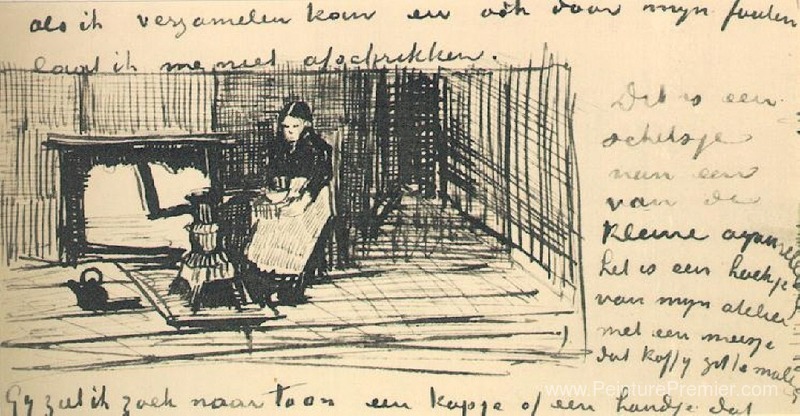 als ik verzamelen kan en ook door mijn fouten
laat ik me niet afschrikken.
Dit is een
schetsje
van een
van de
kleine aquarellen
het is een hoekje
van mijn atelier
met een meisje
dat koffy zit te malen
Gy ziet ik zoek naar toon een kopje of een handje dat
www.PeinturePremier.com